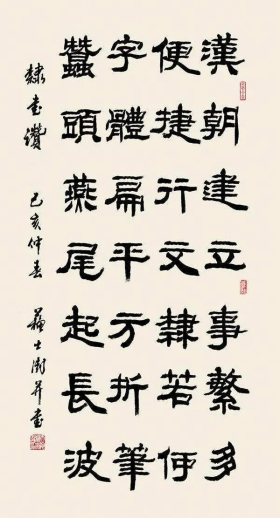 漢朝建立事繁多
便捷行文隸若何
字體扁平方折筆
蠶頭燕尾起長波
隸書讚 己亥仲春 蘇士澍并書